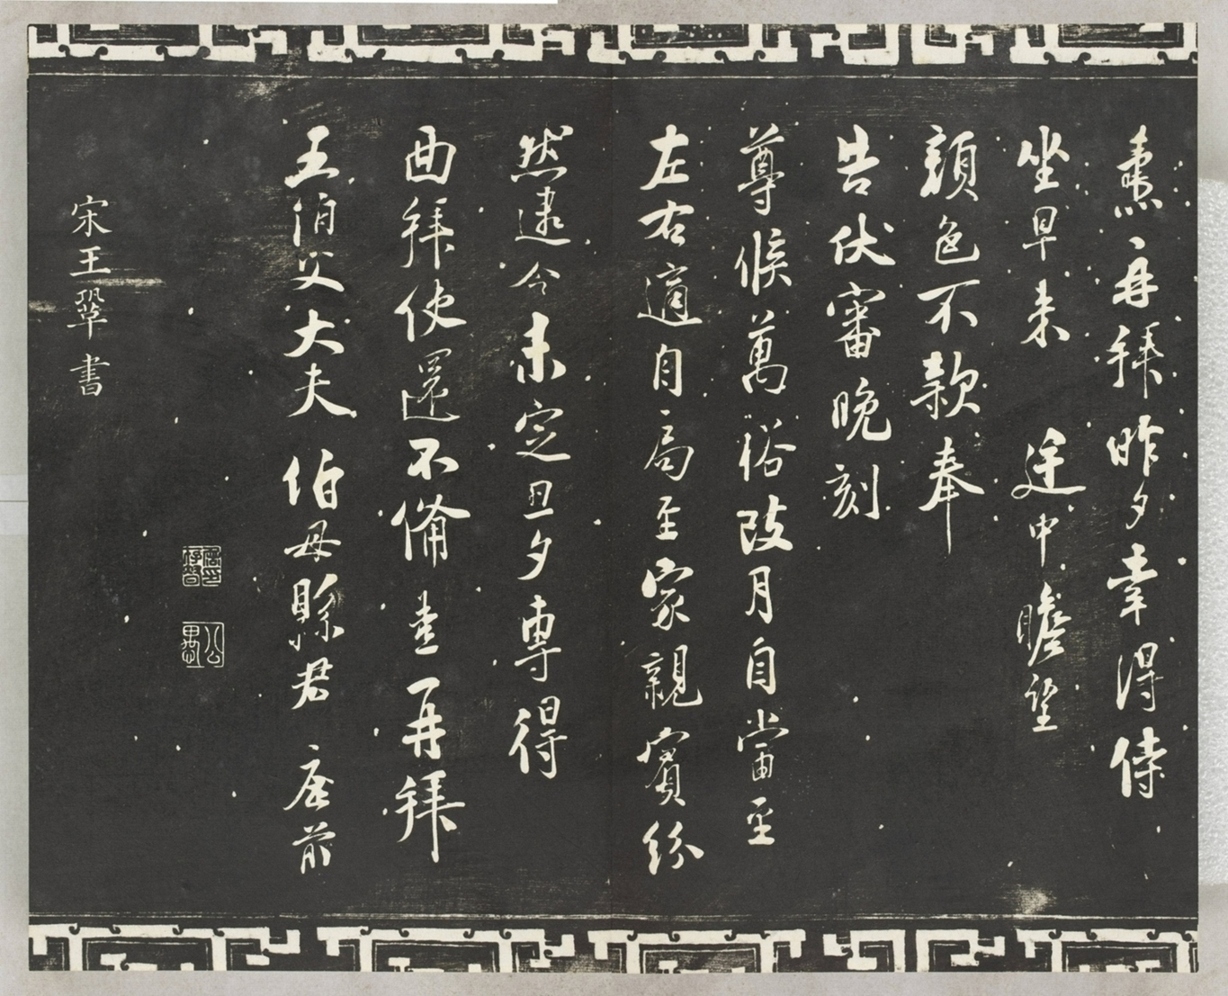 燾再拜昨夕幸得侍
坐早來 廷中瞻望
顏色不款奉
告伏審晚刻
尊候萬裕改月自當至
左右適自局至家親賓紛
然逮今未定旦夕專得
面拜使還不備燾再拜
五伯父大夫 伯母縣君 座前
宋王鞏書